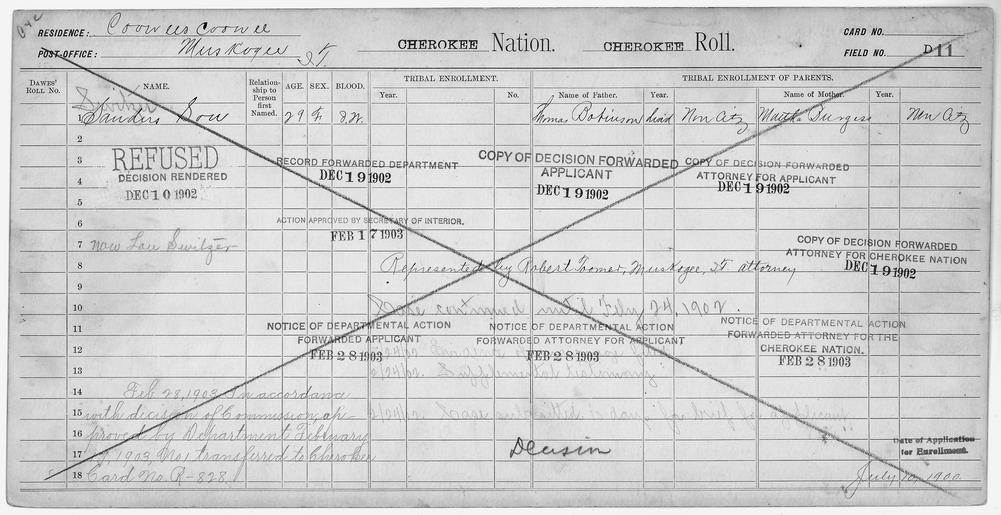 RESIDENCE: Coowees coowee
POST-OFFICE: Muskogee I.T.
CHEROKEE Nation. CHEROKEE Roll.
CARD NO.
FIELD NO. D 11
DAWES' ROLL No. NAME. Relationship to Person first Named. AGE. SEX. BLOOD. TRIBAL ENROLLMENT. TRIBAL ENROLLMENT OF PARENTS.
Year. No. Name of Father. Year. Name of Mother. Year.
Switzer
1 Sanders Lou 29 F. I.W. Thomas Robinson dead Non Citz Martha Burgess Non Citz
2
3 REFUSED RECORD FORWARDED DEPARTMENT COPY OF DECISION FORWARDED APPLICANT COPY OF DECISION FORWARDED ATTORNEY FOR APPLICANT
4 DECISION RENDERED DEC 19 1902 DEC 19 1902 DEC 19 1902
5 DEC 10 1902
6 ACTION APPROVED BY SECRETARY OF INTERIOR.
FEB 17 1903
7 now Lou Switzer COPY OF DECISION FORWARDED ATTORNEY FOR CHEROKEE NATION
8 Represented by Robert Toomer, Muskogee, I.T. attorney DEC 19 1902
9
10 Case continued until Feby 24, 1902.
11 NOTICE OF DEPARTMENTAL ACTION FORWARDED APPLICANT NOTICE OF DEPARTMENTAL ACTION FORWARDED ATTORNEY FOR APPLICANT NOTICE OF DEPARTMENTAL ACTION FORWARDED ATTORNEY FOR THE CHEROKEE NATION.
12 FEB 28 1903 FEB 28 1903 FEB 28 1903
13 Supplemental testimony
14 Feb. 28, 1903 In accordance
15 with decision of Commission ap-
16 proved by Department February
17 1903 No 1 transferred to Cherokee
18 Card No. R-828.
Decision
Date of Application for Enrollment.
July 10, 1900.